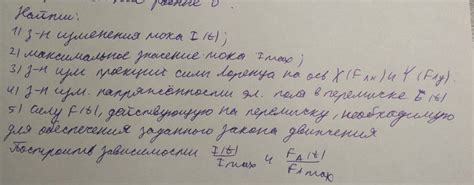 Найти:
1) з-н изменения тока I(t);
2) максимальное значение тока Imax;
3) з-н изм. проекций силы Лоренца на ось X(Fлx) и Y(Fлy).
4) з-н изм. напряжённости эл. поля в перемычке E(t)
5) силу F(t), действующую на перемычку, необходимую
для обеспечения заданного закона движения
Построить зависимости I(t)/Imax и FA(t)/FAmax